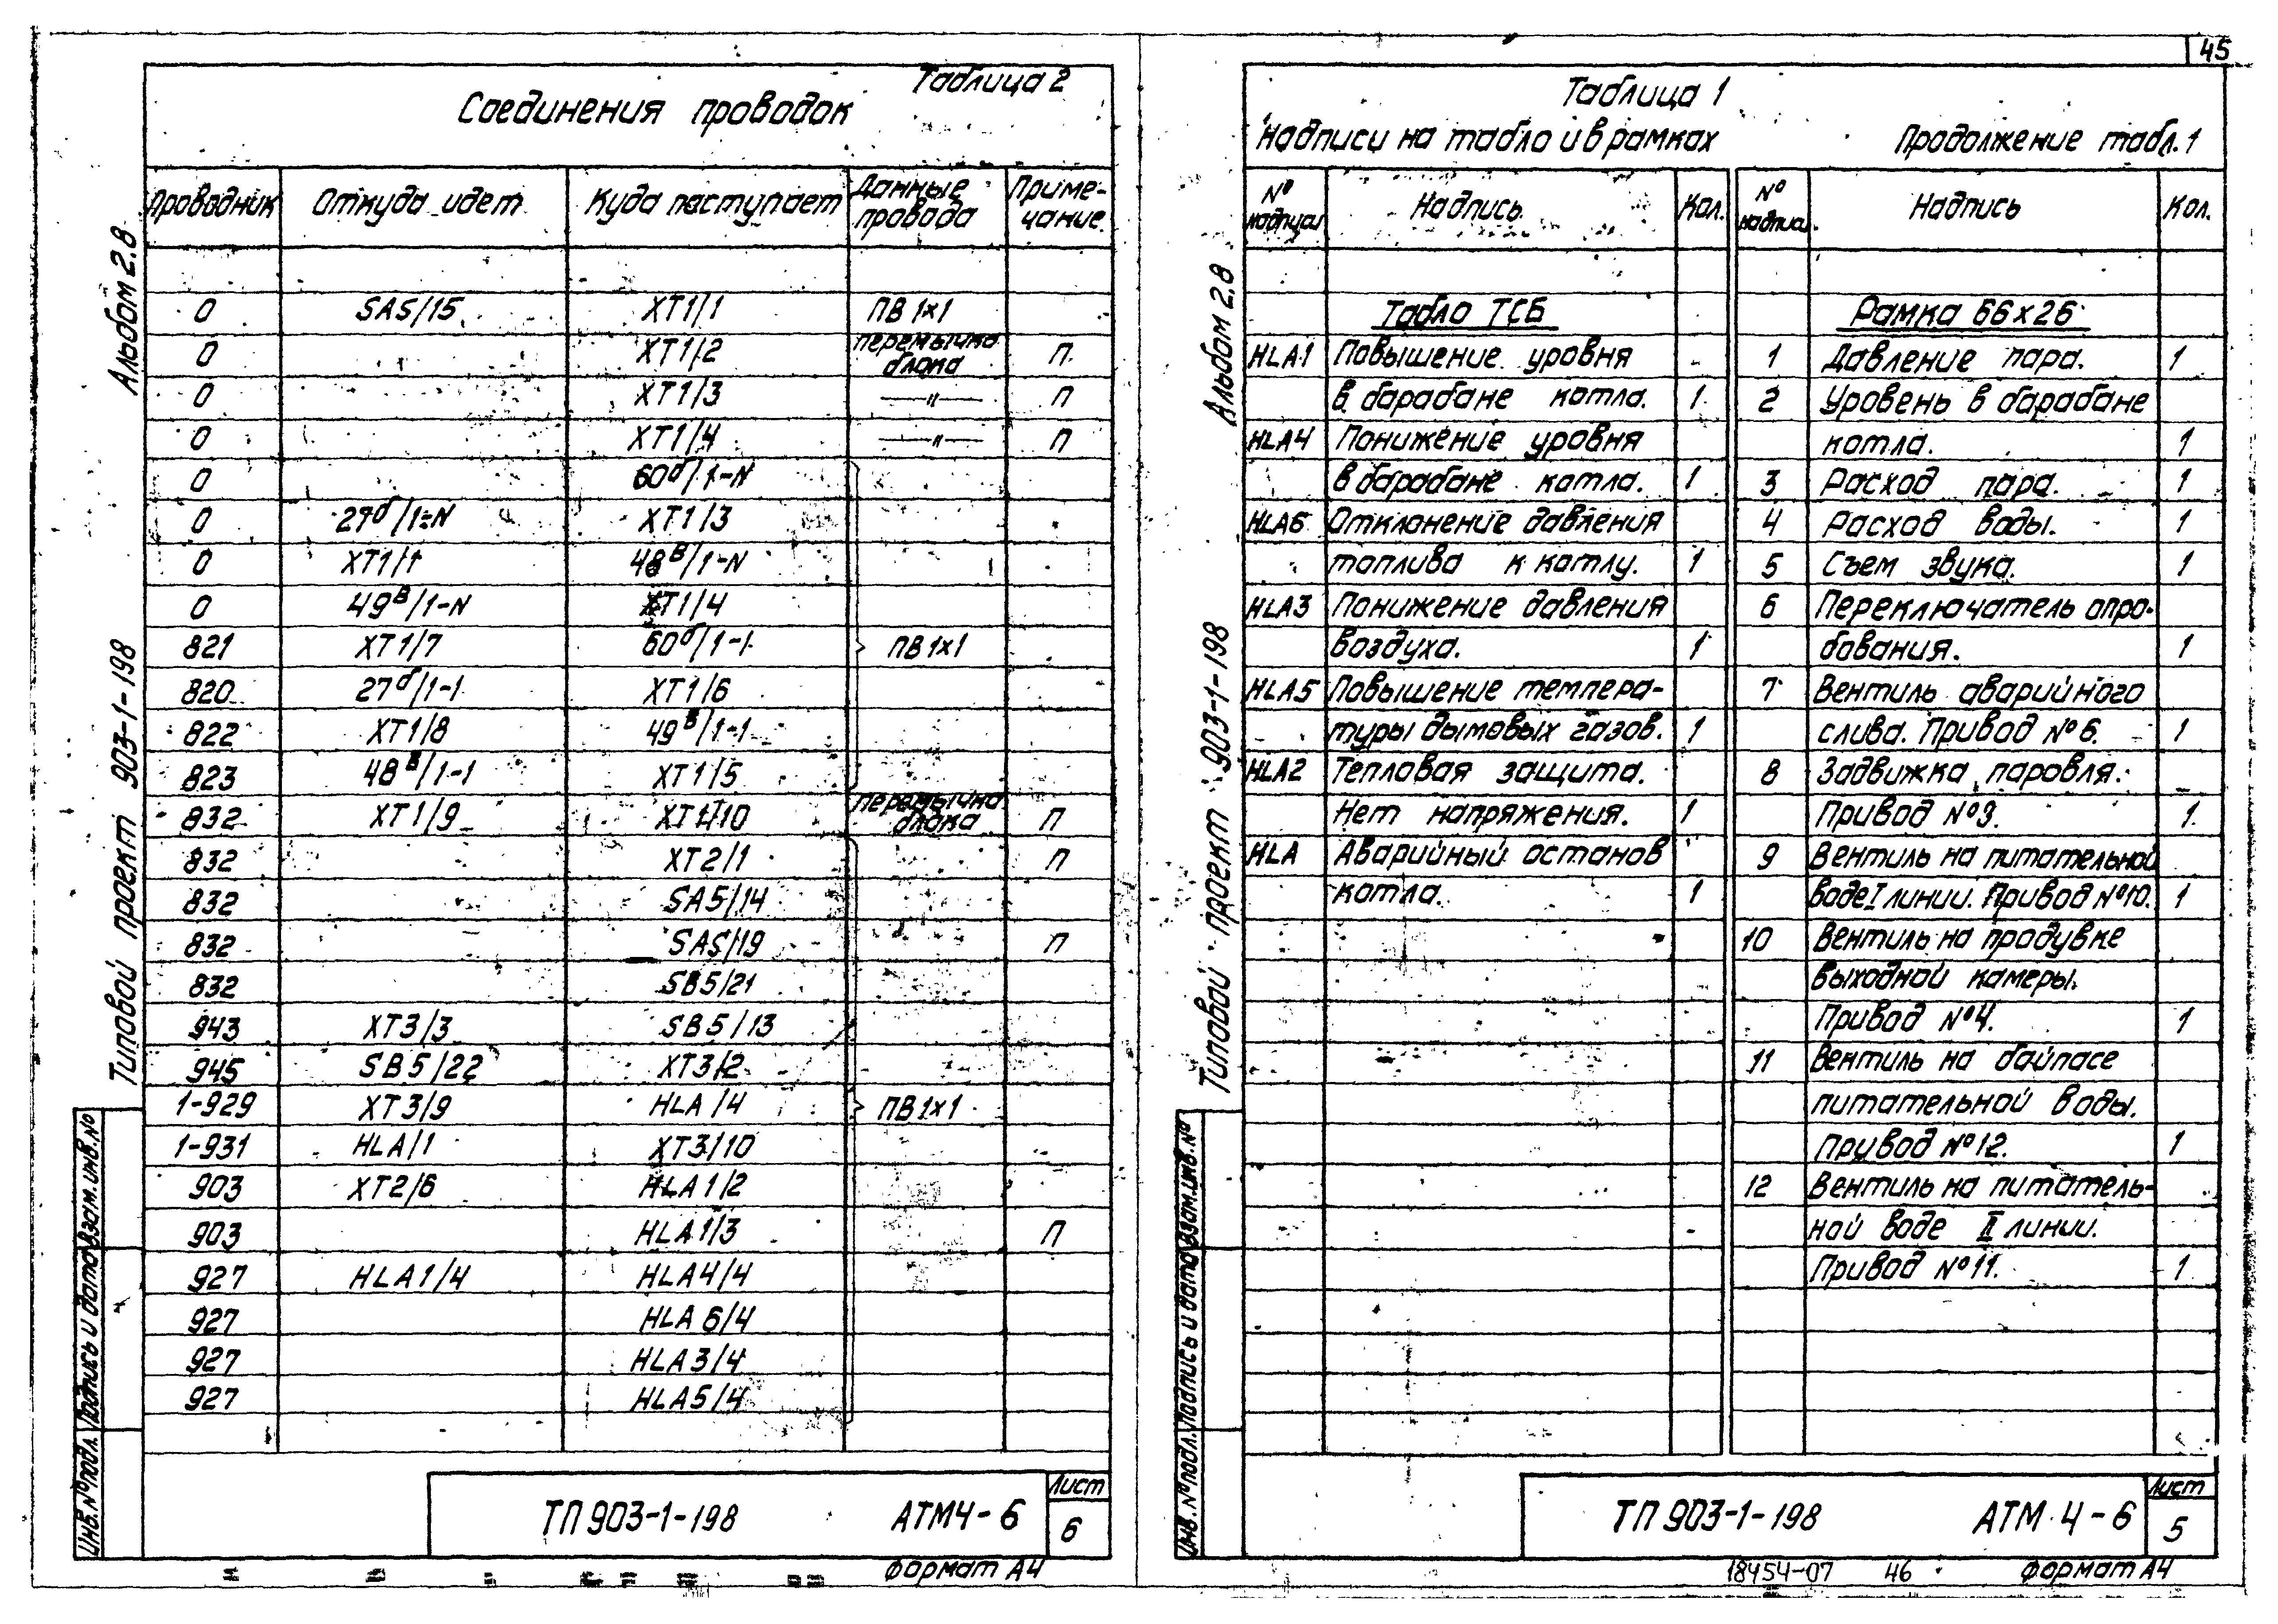 45
Таблица 2
Соединения проводок
Проводник Откуда идет Куда поступает Данные провода Примечание
0 SA5/15 XT1/1 ПВ 1х1
0 XT1/2 перемычка блока П
0 XT1/3 —"— П
0 XT1/4 —"— П
0 60б/1-N
0 27б/1-N XT1/3
0 XT1/1 48В/1-N
0 49В/1-N XT1/4
821 XT1/7 60б/1-1 ПВ 1х1
820 27б/1-1 XT1/6
822 XT1/8 49В/1-1
823 48В/1-1 XT1/5
832 XT1/9 XT1/10 перемычка блока П
832 XT2/1 П
832 SA5/14
832 SA5/19 П
832 SB5/21
943 XT3/3 SB5/13
945 SB5/22 XT3/2
1-929 XT3/9 HLA/4 ПВ 1х1
1-931 HLA/1 XT3/10
903 XT2/6 HLA1/2
903 HLA1/3 П
927 HLA1/4 HLA4/4
927 HLA6/4
927 HLA3/4
927 HLA5/4
Альбом 2.8
Типовой проект 903-1-198
Взам.инв.№
Подпись и дата
Инв.№подл.
ТП 903-1-198 АТМ4-6
Лист
6
Формат А4
Таблица 1
Надписи на табло и в рамках Продолжение табл.1
№ надписи Надпись Кол. № надписи Надпись Кол.
Табло ТСБ Рамка 66х26
HLA1 Повышение уровня 1 Давление пара. 1
в барабане котла. 1 2 Уровень в барабане
HLA4 Понижение уровня котла. 1
в барабане котла. 1 3 Расход пара. 1
HLA6 Отклонение давления 4 Расход воды. 1
топлива к котлу. 1 5 Съем звука. 1
HLA3 Понижение давления 6 Переключатель опро-
воздуха. 1 бования. 1
HLA5 Повышение темпера- 7 Вентиль аварийного
туры дымовых газов. 1 слива. Привод №6. 1
HLA2 Тепловая защита. 8 Задвижка паровля.
Нет напряжения. 1 Привод №9. 1
HLA Аварийный останов 9 Вентиль на питательной
котла. 1 воде I линии. Привод №10. 1
10 Вентиль на продувке
выходной камеры.
Привод №4. 1
11 Вентиль на байпасе
питательной воды.
Привод №12. 1
12 Вентиль на питатель-
ной воде II линии.
Привод №11. 1
Альбом 2.8
Типовой проект 903-1-198
Взам.инв.№
Подпись и дата
Инв.№подл.
ТП 903-1-198 АТМ 4-6
Лист
5
18454-07 46 Формат А4